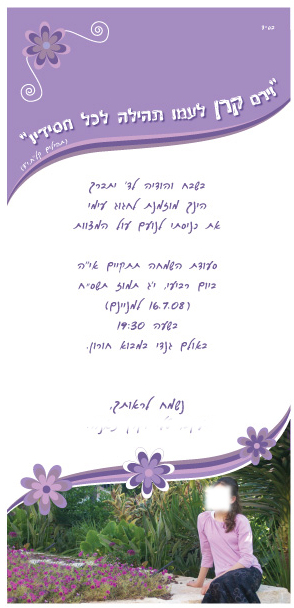 בס״ד
״וירם קרן לעמו תהילה לכל חסידיו״
בשבח והודיה לד' יתברך
הינך מוזמנת לחגוג עימי
את כניסתי לנועם עול המצוות
סעודת השמחה תתקיים אי״ה
ביום רביעי, י״ג תמוז תשס״ח
(16.7.08 למניינם)
בשעה 19:30
באולם גנדי במבוא חורון.
נשמח לראותך,